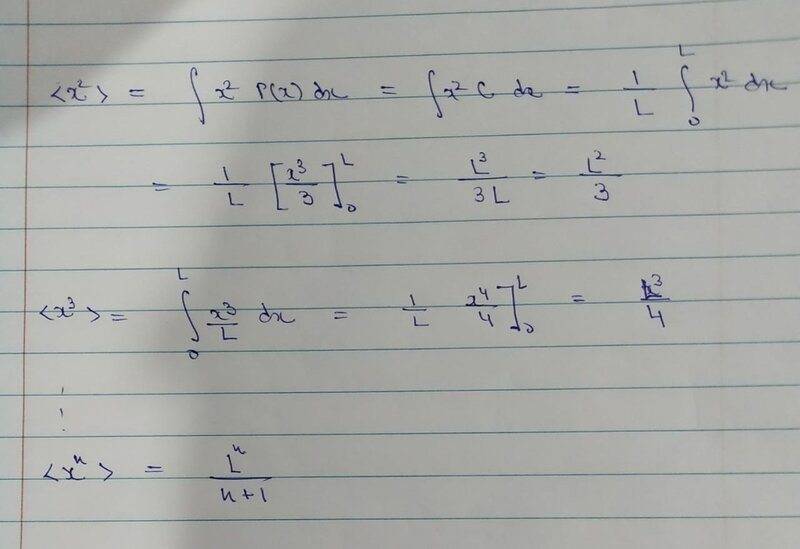 <x²> = ∫ x² P(x) dx = ∫ x² C dx = 1/L ∫₀ᴸ x² dx
= 1/L [x³/3]₀ᴸ = L³/3L = L²/3
<x³> = ∫₀ᴸ x³/L dx = 1/L x⁴/4]₀ᴸ = L³/4
⋮
<xⁿ> = Lⁿ/n+1